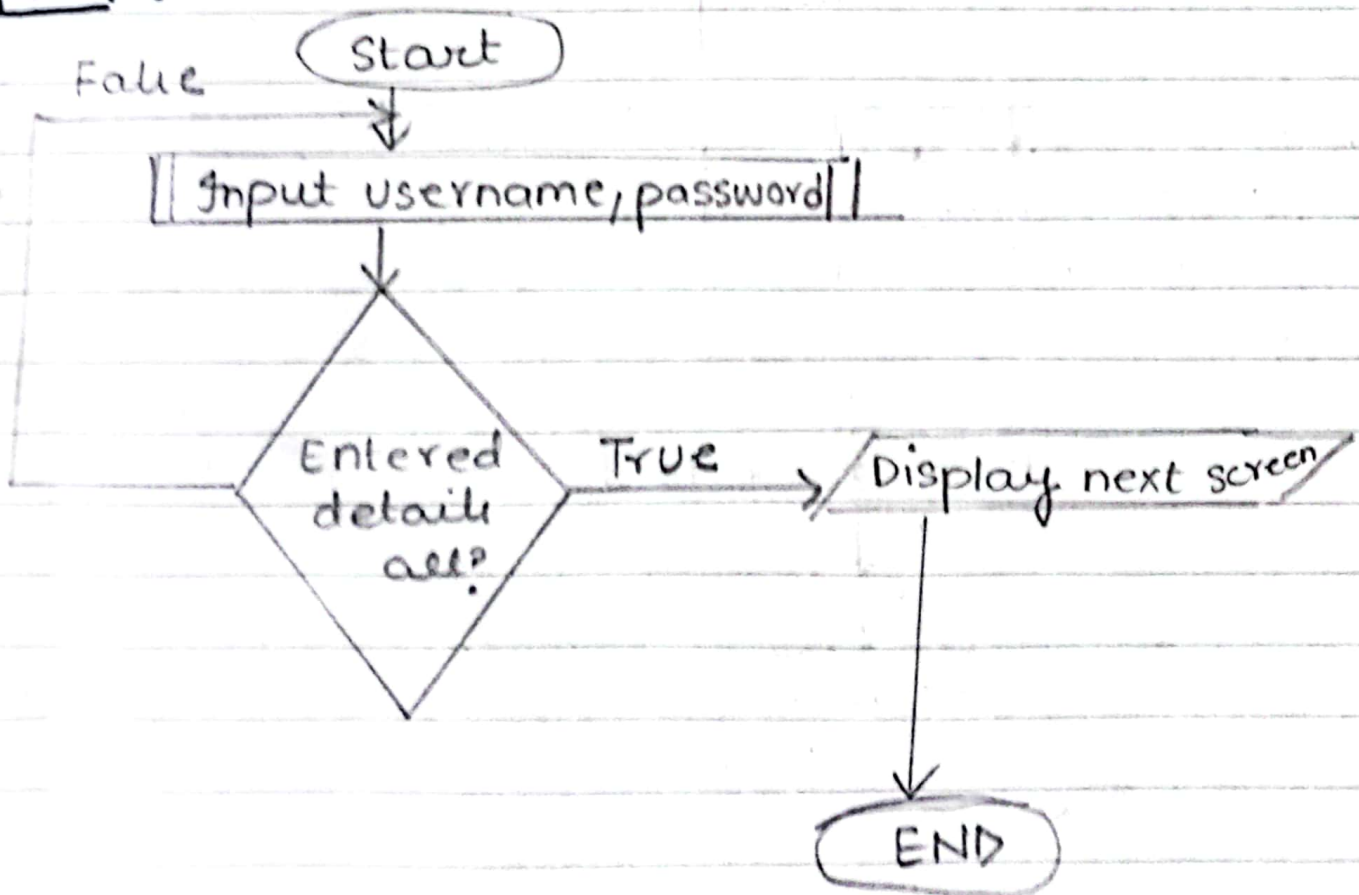 Start
False
Input username, password
Entered
details
all?
True
Display next screen
END